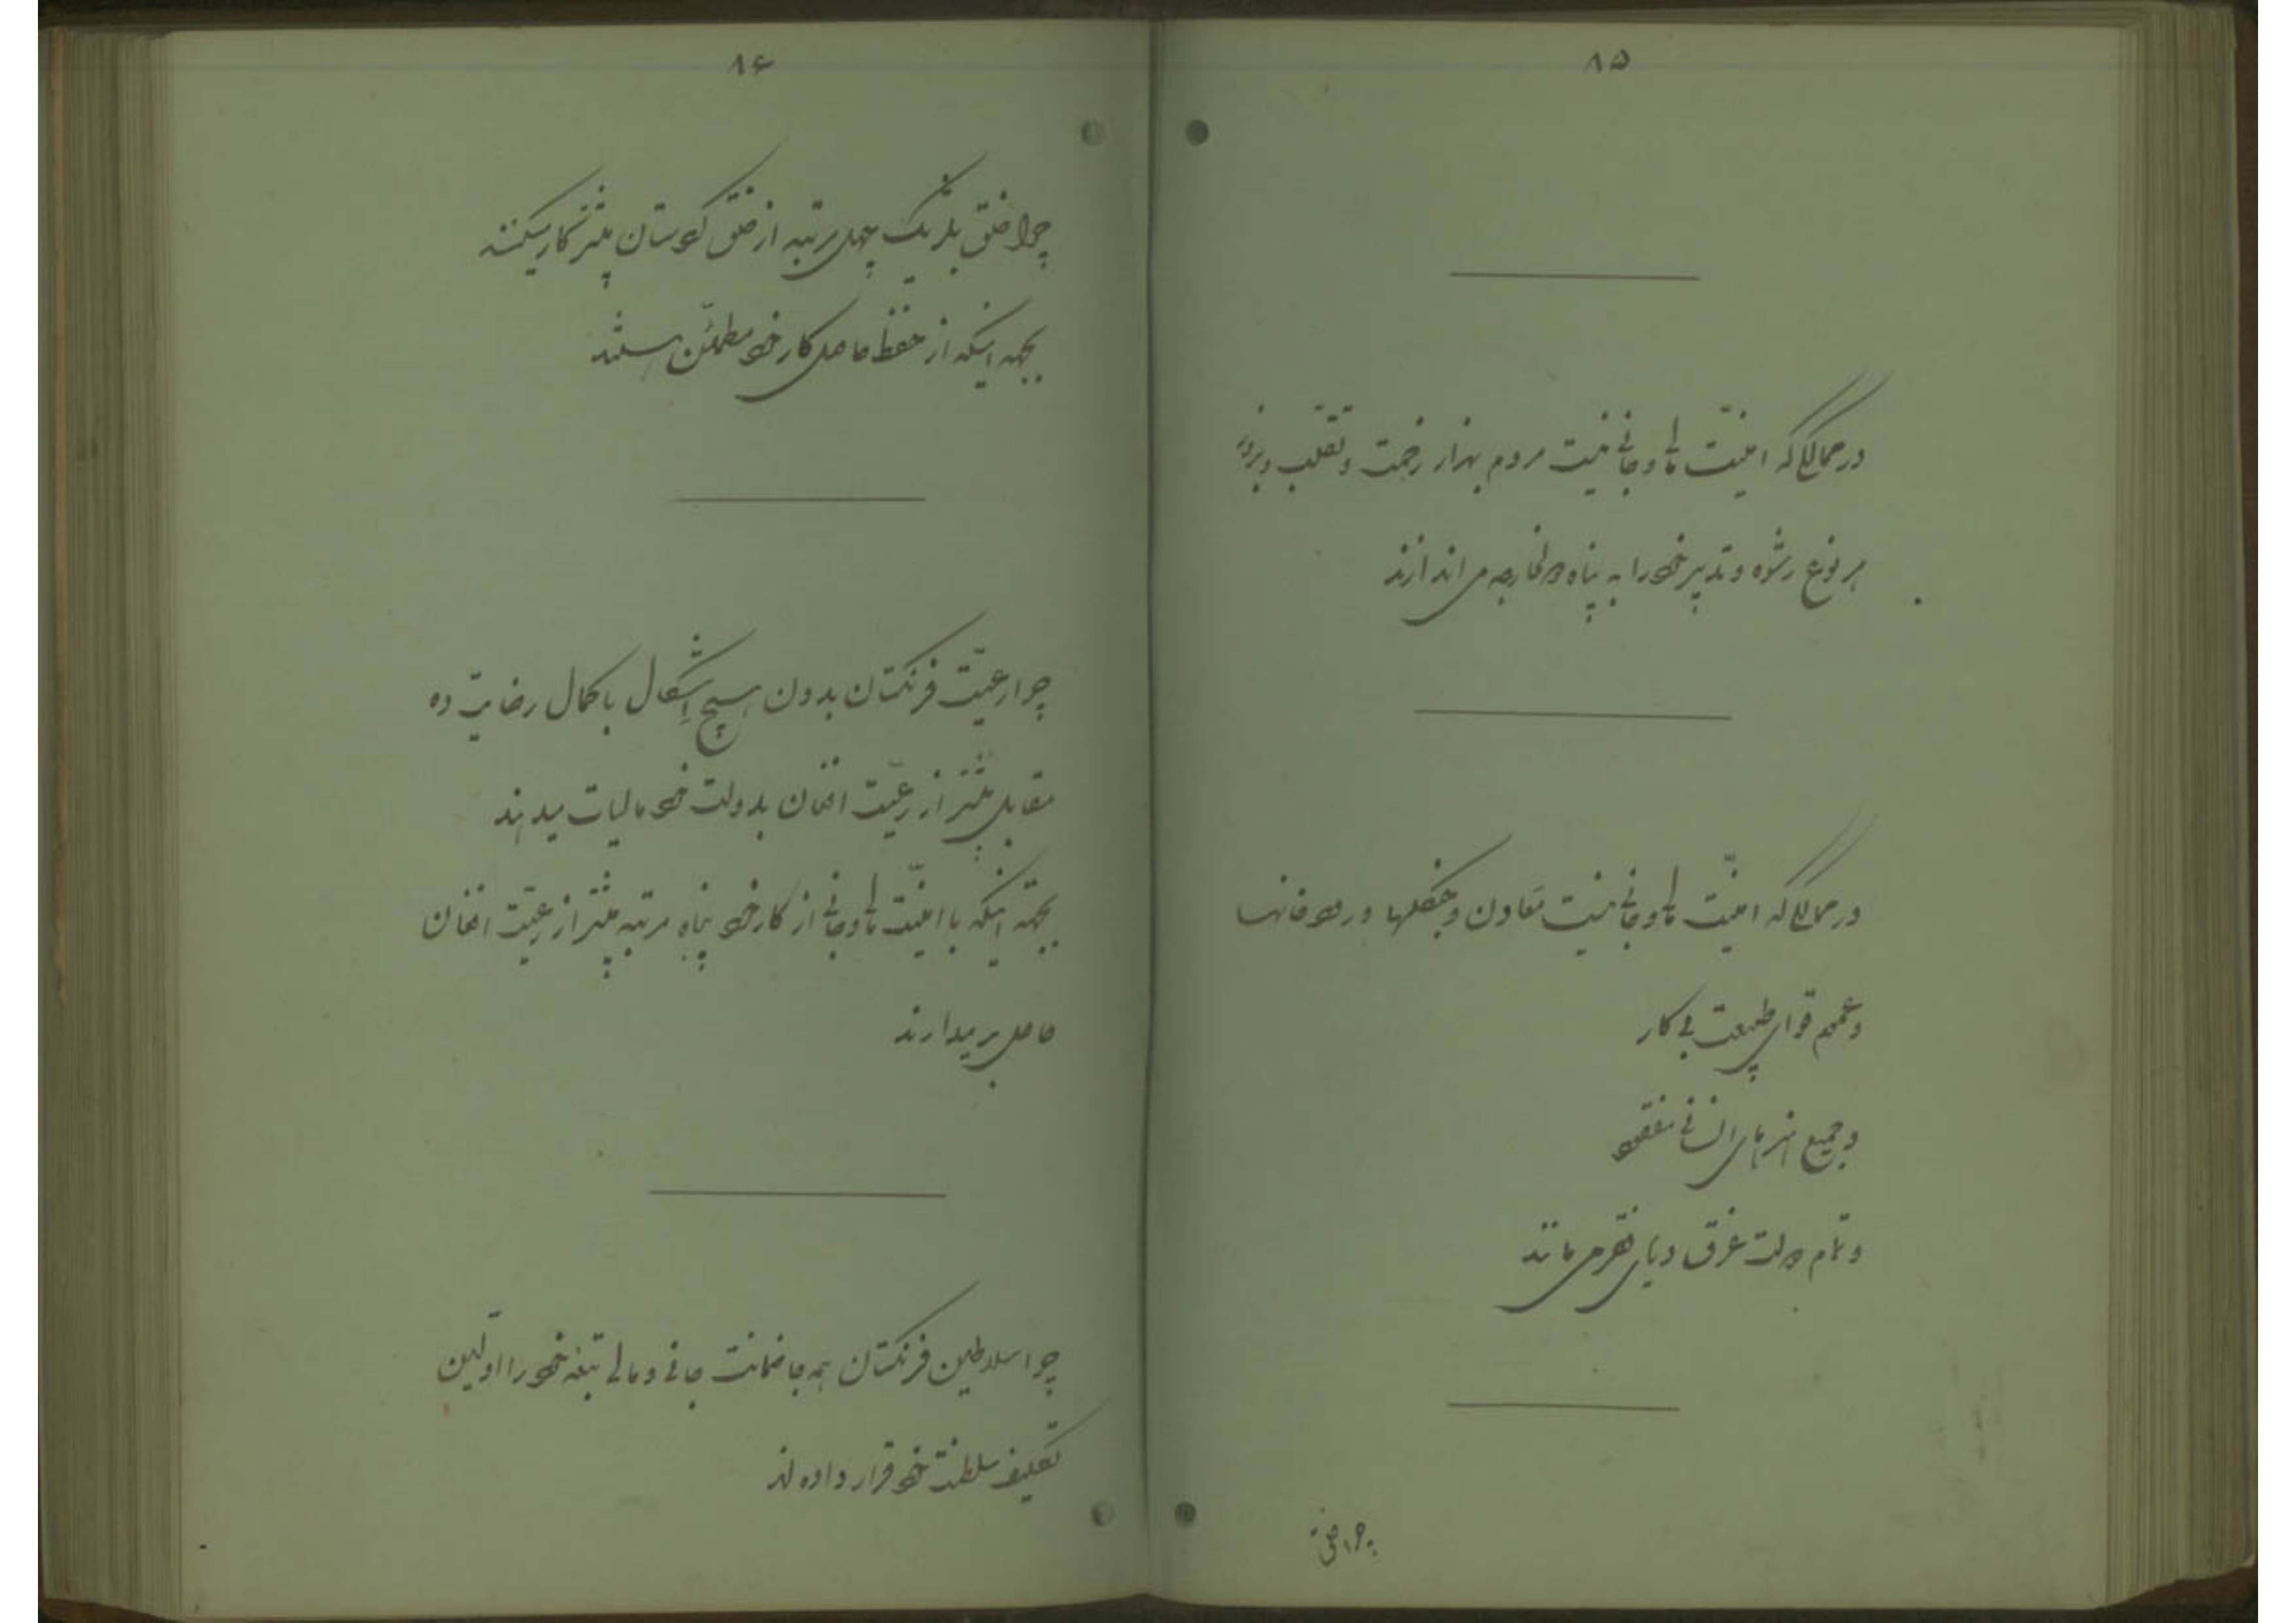 ۸۵
در ممالکی که امنیّت مالی و جانی نیست مردم بهزار زحمت و تقلب و بزور
هر نوع رشوه و تدبیر خود را به پناه دول خارجه می اندازند
در ممالکی که امنیّت مالی و جانی نیست معادن و جنگلها و رودخانها
و عموم قوای طبیعت بی کار
و جمیع هنرهای انسانی مفقود
و تمام دولت غرق دریای فقر می ماند
چرا خلق
۸۶
چرا خلق بلژیک چهل مرتبه از خلق کردستان بیشتر کار میکنند
بجهه اینکه از حفظ حاصل کار خود مطمئن هستند
چرا رعیّت فرنگستان بدون هیچ اِشکال با کمال رضایت ده
مقابل بیشتر از رعیّت افغان بدولت خود مالیات میدهند
بجهة اینکه با امنیّت مالی و جانی از کار خود پنجاه مرتبه بیشتر از رعیّت افغان
حاصل برمیدارند
چرا سلاطین فرنگستان همه جا ضمانت جانی و مالی تبعه خود را اوّلین
تکلیف سلطنت خود قرار داده اند